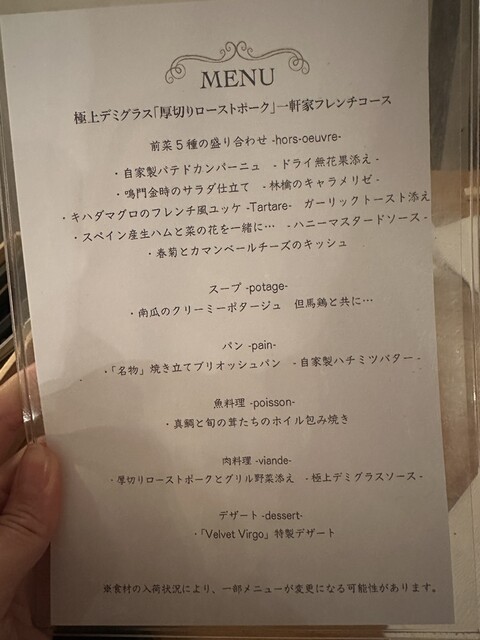 MENU
極上デミグラス「厚切りローストポーク」一軒家フレンチコース
前菜5種の盛り合わせ -hors-oeuvre-
・自家製パテドカンパーニュ　- ドライ無花果添え -
・鳴門金時のサラダ仕立て　- 林檎のキャラメリゼ -
・キハダマグロのフレンチ風ユッケ -Tartare-　ガーリックトースト添え
・スペイン産生ハムと菜の花を一緒に…　- ハニーマスタードソース -
・春菊とカマンベールチーズのキッシュ
スープ -potage-
・南瓜のクリーミーポタージュ　但馬鶏と共に…
パン -pain-
・「名物」焼き立てブリオッシュパン　- 自家製ハチミツバター -
魚料理 -poisson-
・真鯛と旬の茸たちのホイル包み焼き
肉料理 -viande-
・厚切りローストポークとグリル野菜添え　- 極上デミグラスソース -
デザート -dessert-
・「Velvet Virgo」特製デザート
※食材の入荷状況により、一部メニューが変更になる可能性があります。